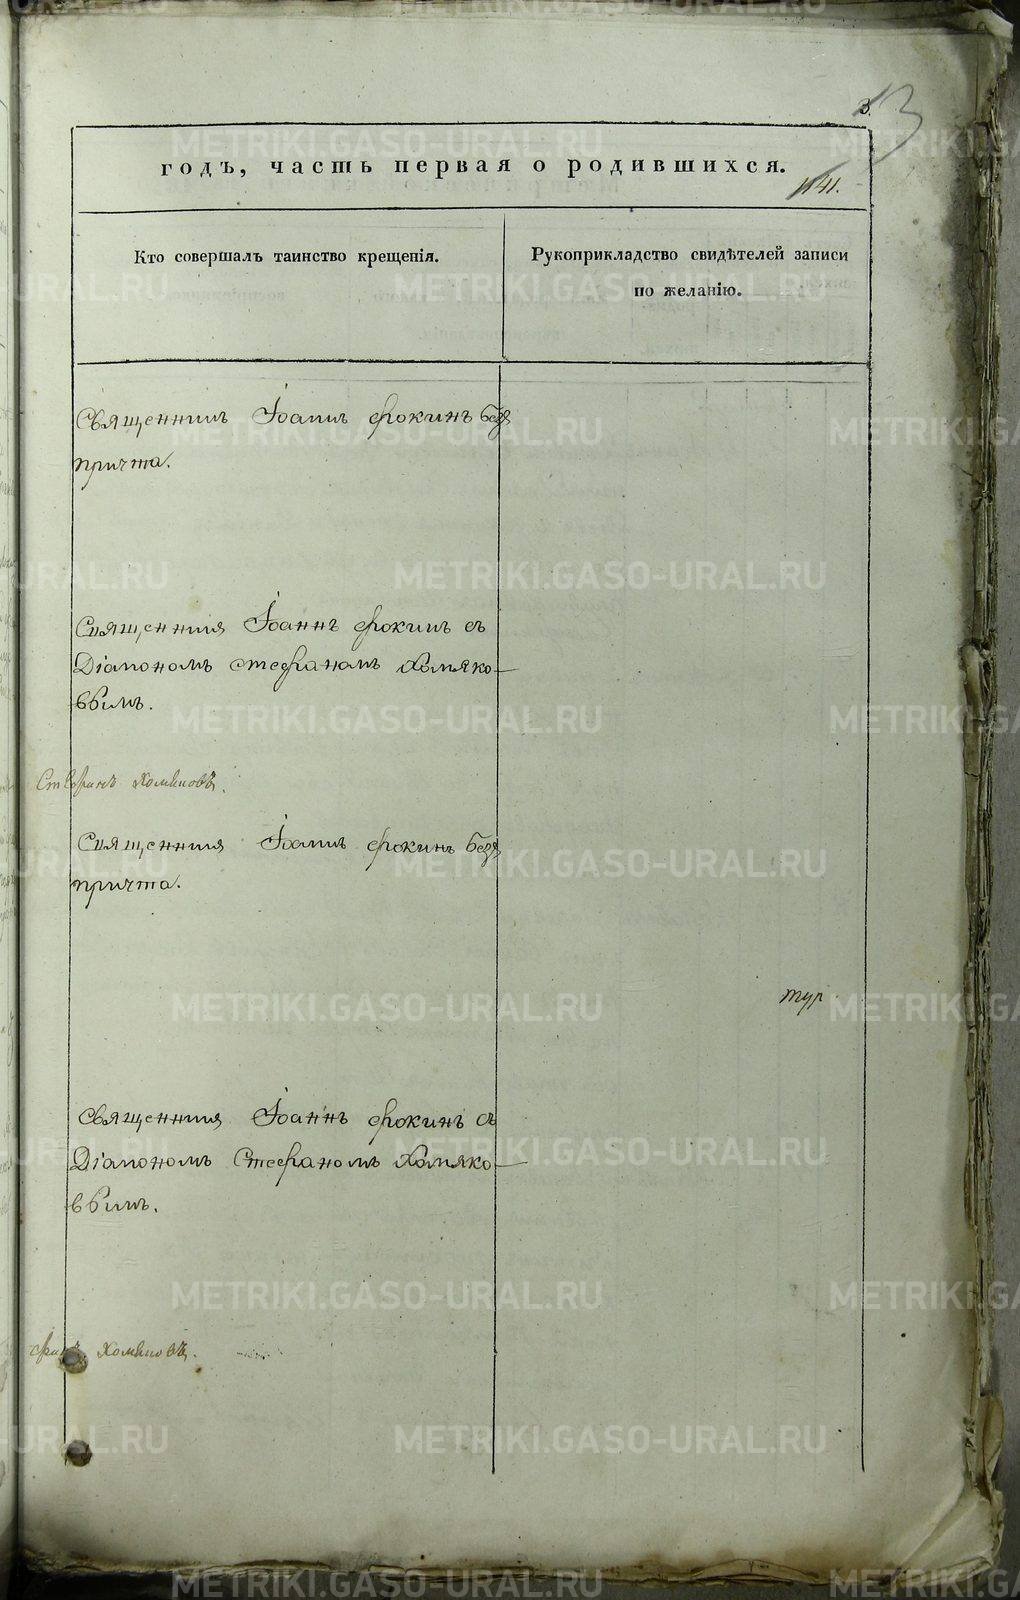 3.
13
годъ, часть первая о родившихся.
1141.
Кто совершалъ таинство крещенія.
Рукоприкладство свидѣтелей записи
по желанію.
Священникъ Іоаннъ Фокинъ безъ
причта.
Священникъ Іоаннъ Фокинъ съ
Діакономъ Стефаномъ Хомяко-
вымъ.
Стефанъ Хомяковъ.
Священникъ Іоаннъ Фокинъ безъ
причта.
тур
Священникъ Іоаннъ Фокинъ съ
Діакономъ Стефаномъ Хомяко-
вымъ.
фанъ Хомяковъ.
METRIKI.GASO-URAL.RU